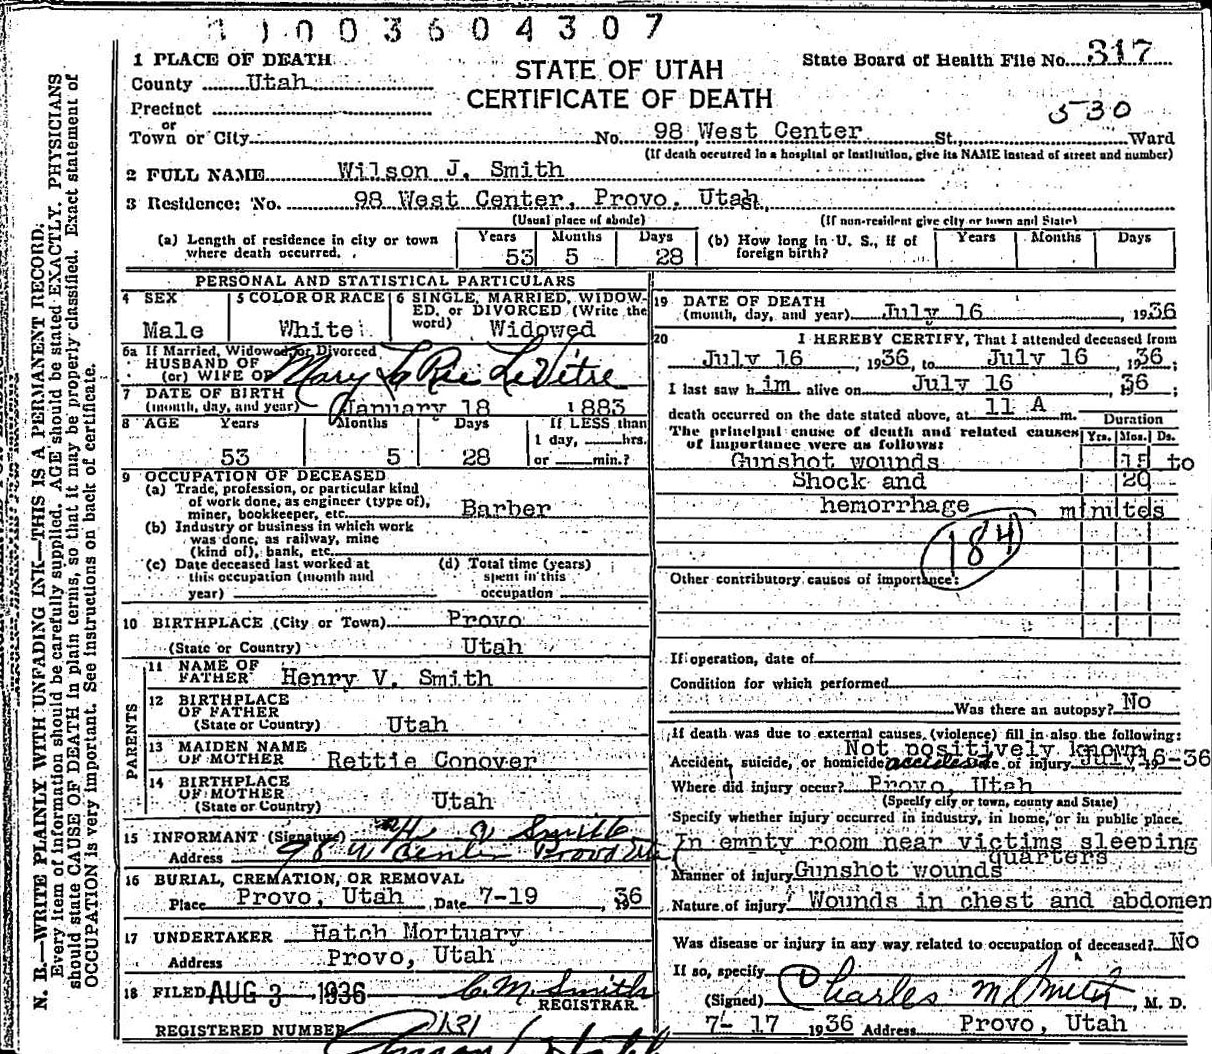 1003604307
1 PLACE OF DEATH
STATE OF UTAH
CERTIFICATE OF DEATH
State Board of Health File No. 317
County Utah
Precinct
530
or
Town or City No. 98 West Center St., Ward
(If death occurred in a hospital or institution, give its NAME instead of street and number)
2 FULL NAME Wilson J. Smith
3 Residence: No. 98 West Center, Provo, Utah,
(Usual place of abode) (If non-resident give city or town and State)
(a) Length of residence in city or town where death occurred. Years 53 Months 5 Days 28
(b) How long in U. S., if of foreign birth? Years Months Days
PERSONAL AND STATISTICAL PARTICULARS
4 SEX
Male
5 COLOR OR RACE
White
6 SINGLE, MARRIED, WIDOWED, or DIVORCED (Write the word)
Widowed
6a If Married, Widowed or Divorced
HUSBAND OF
(or) WIFE OF Mary LaRue LeVitre
7 DATE OF BIRTH
(month, day, and year) January 18 1883
8 AGE Years Months Days If LESS than
1 day, hrs.
53 5 28 or min.?
9 OCCUPATION OF DECEASED
(a) Trade, profession, or particular kind
of work done, as engineer (type of),
miner, bookkeeper, etc. Barber
(b) Industry or business in which work
was done, as railway, mine
(kind of), bank, etc.
(c) Date deceased last worked at
this occupation (month and
year)
(d) Total time (years)
spent in this
occupation
10 BIRTHPLACE (City or Town) Provo
(State or Country) Utah
PARENTS
11 NAME OF
FATHER Henry V. Smith
12 BIRTHPLACE
OF FATHER
(State or Country) Utah
13 MAIDEN NAME
OF MOTHER Rettie Conover
14 BIRTHPLACE
OF MOTHER
(State or Country) Utah
15 INFORMANT (Signature) H V Smith
Address 98 W Center Provo Utah
16 BURIAL, CREMATION, OR REMOVAL
Place Provo, Utah Date 7-19, 1936
17 UNDERTAKER Hatch Mortuary
Address Provo, Utah
18 FILED AUG 3 1936 C. M. Smith
REGISTRAR.
REGISTERED NUMBER 131
19 DATE OF DEATH
(month, day, and year) July 16, 1936
20 I HEREBY CERTIFY, That I attended deceased from
July 16, 1936, to July 16, 1936;
I last saw him alive on July 16, 36;
death occurred on the date stated above, at 11 A m.
Duration
The principal cause of death and related causes
of importance were as follows: Yrs. Mos. Ds.
Gunshot wounds 15 to
Shock and 20
hemorrhage minutes
184
Other contributory causes of importance:
If operation, date of
Condition for which performed
Was there an autopsy? No
If death was due to external causes (violence) fill in also the following:
Not positively known
Accident, suicide, or homicide accident Date of injury July 16-36
Where did injury occur? Provo, Utah
(Specify city or town, county and State)
Specify whether injury occurred in industry, in home, or in public place.
In empty room near victims sleeping
quarters
Manner of injury Gunshot wounds
Nature of injury Wounds in chest and abdomen
Was disease or injury in any way related to occupation of deceased? No
If so, specify
(Signed) Charles M Smith, M. D.
7-17 1936 Address Provo, Utah
N. B.—WRITE PLAINLY, WITH UNFADING INK—THIS IS A PERMANENT RECORD.
Every item of information should be carefully supplied. AGE should be stated EXACTLY. PHYSICIANS
should state CAUSE OF DEATH in plain terms, so that it may be properly classified. Exact statement of
OCCUPATION is very important. See instructions on back of certificate.